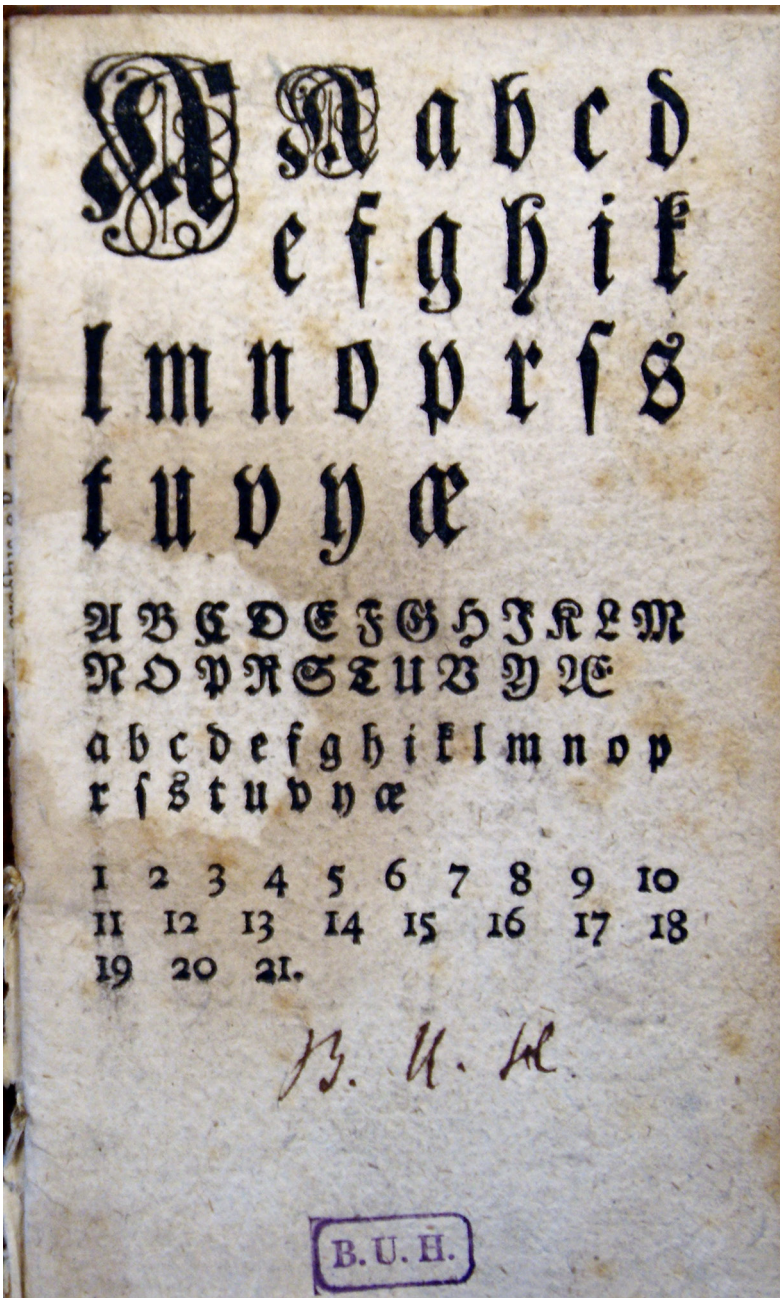 A A a b c d
e f g h i k
l m n o p r ſ s
t u v y æ
A B C D E F G H I K L M
N O P R S T U V Y Æ
a b c d e f g h i k l m n o p
r ſ s t u v y æ
1 2 3 4 5 6 7 8 9 10
11 12 13 14 15 16 17 18
19 20 21.
B. U. H.
B. U. H.